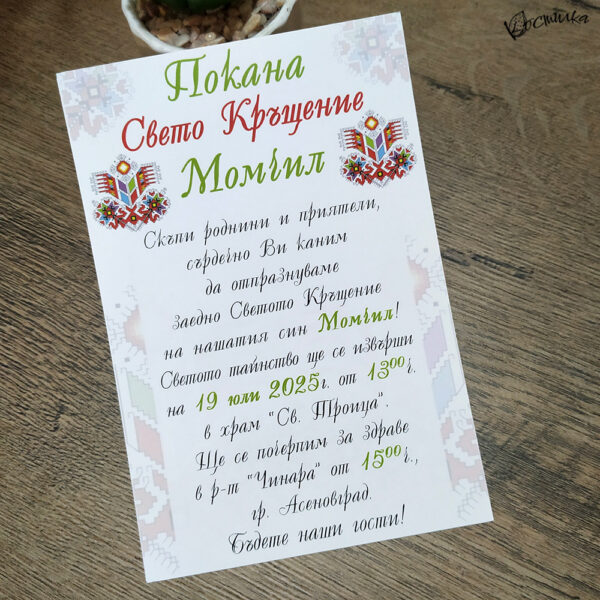 Костилка
Покана
Свето Кръщение
Момчил
Скъпи роднини и приятели,
сърдечно Ви каним
да отпразнуваме
заедно Светото Кръщение
на нашатия син Момчил!
Светото тайнство ще се извърши
на 19 юли 2025г. от 13⁰⁰ч.
в храм "Св. Троица".
Ще се почерпим за здраве
в р-т "Чинара" от 15⁰⁰ч.,
гр. Асеновград.
Бъдете наши гости!